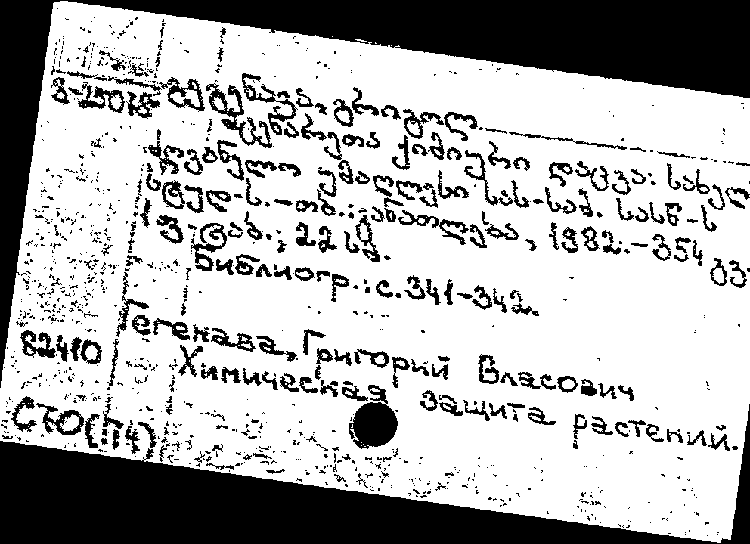 3-25078 გეგენავა, გრიგოლ
მცენარეთა ქიმიური დაცვა: სახელ
მძღვანელო უმაღლესი სას-სამ. სასწ-ს
სტუდ-ს.-თბ.: განათლება, 1982.-354 გვ.
1 ფ-ტაბ.; 22 სმ.
Библиогр.: с.341-342.
Гегенава, Григорий Власович
82410 Химическая защита растений.
С70(П4)